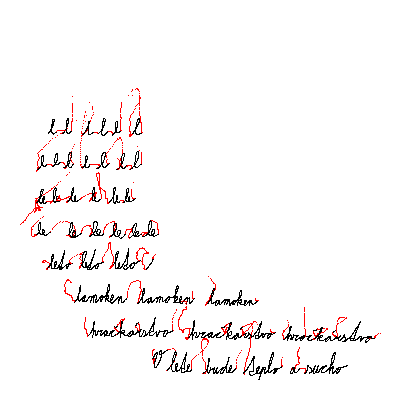 l l l l l l
l l l l l l l
le le le le le le
le le le le le le
leto leto leto
lamoken lamoken lamoken
hračkárstvo hračkárstvo hračkárstvo
V lete bude teplo a sucho